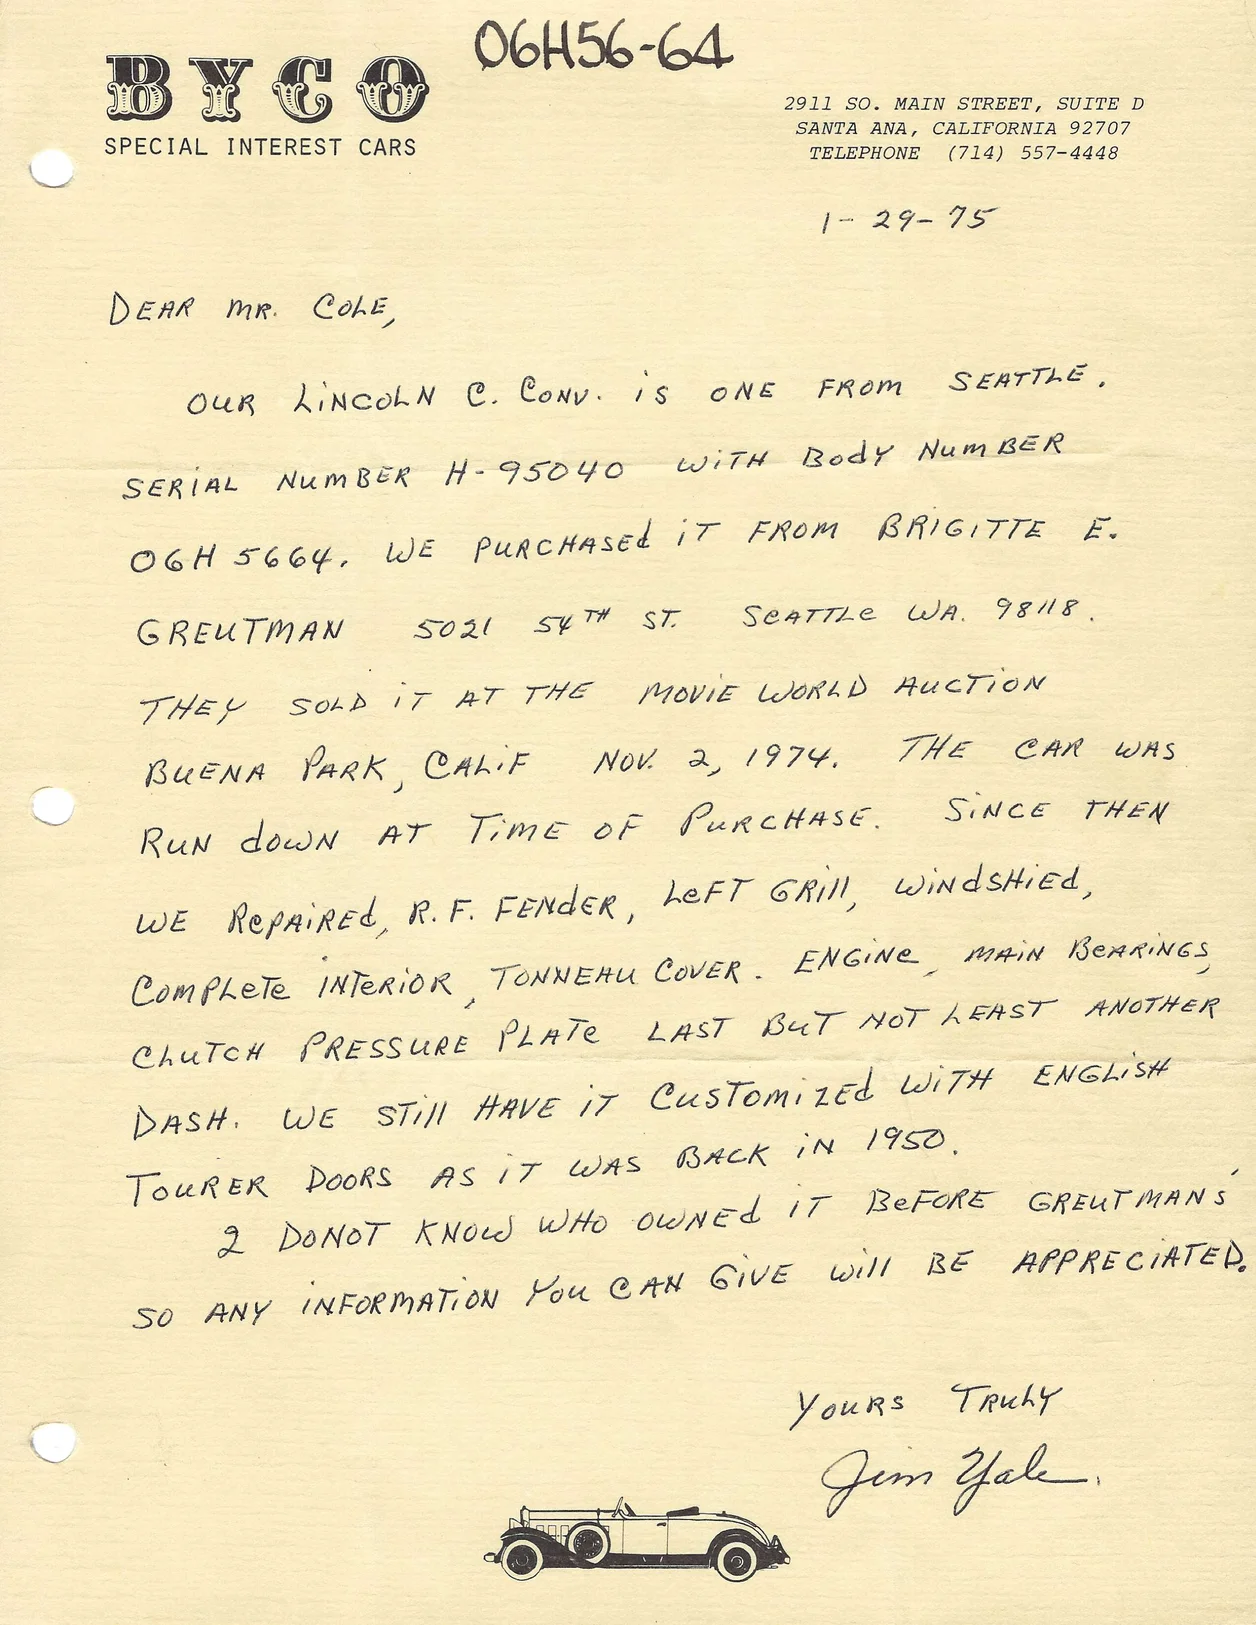 06H56-64
BYCO
SPECIAL INTEREST CARS
2911 SO. MAIN STREET, SUITE D
SANTA ANA, CALIFORNIA 92707
TELEPHONE (714) 557-4448
1-29-75
DEAR MR. COLE,
OUR LINCOLN C. CONV. IS ONE FROM SEATTLE.
SERIAL NUMBER H-95040 WITH BODY NUMBER
06H 5664. WE PURCHASED IT FROM BRIGITTE E.
GREUTMAN 5021 54TH ST. SEATTLE WA. 98118.
THEY SOLD IT AT THE MOVIE WORLD AUCTION
BUENA PARK, CALIF NOV. 2, 1974. THE CAR WAS
RUN DOWN AT TIME OF PURCHASE. SINCE THEN
WE REPAIRED, R.F. FENDER, LEFT GRILL, WINDSHIED,
COMPLETE INTERIOR, TONNEAU COVER. ENGINE, MAIN BEARINGS,
CLUTCH PRESSURE PLATE LAST BUT NOT LEAST ANOTHER
DASH. WE STILL HAVE IT CUSTOMIZED WITH ENGLISH
TOURER DOORS AS IT WAS BACK IN 1950.
I DONOT KNOW WHO OWNED IT BEFORE GREUTMAN'S
SO ANY INFORMATION YOU CAN GIVE WILL BE APPRECIATED.
YOURS TRULY
Jim Yale.